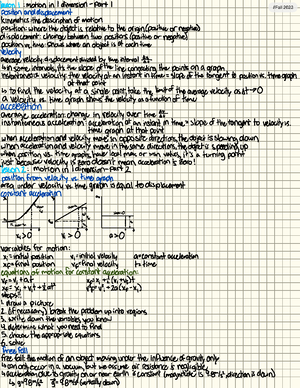 Lesson 1: motion in 1 dimension - Part 1
Fall 2022
position and displacement
kinematics: the description of motion
position: where the object is relative to the origin (positive or negative)
displacement: change between two positions (positive or negative)
position vs. time: shows where an object is at each time
velocity
average velocity: displacement divided by time interval
in some intervals, it's the slope of the line connecting the points on a graph
instantaneous velocity: the velocity at an instant in time = slope of the tangent to position vs. time graph
at that point
to find the velocity at a single point, take the limit of the average velocity as Δt→0
a velocity vs. time graph shows the velocity as a function of time
acceleration
average acceleration: change in velocity over time
instantaneous acceleration: acceleration at an instant in time = slope of the tangent to velocity vs.
time graph at that point
when acceleration and velocity move in opposite direction, the object is slowing down
when acceleration and velocity move in the same directions, the object is speeding up
when position vs. time graphs have local max or min values, it's a turning point
just because velocity is zero doesn't mean acceleration is zero!
Lesson 2: motion in 1 dimension - part 2
position from velocity vs. time graph
area under velocity vs. time graph is equal to displacement
constant acceleration
variables for motion:
xi = initial position vi = initial velocity a = constant acceleration
xf = final position vf = final velocity t = time
equations of motion for constant acceleration:
steps:
1. draw a picture
2. (if necessary) break the problem up into regions
3. write down the variables you know
4. determine what you need to find
5. choose the appropriate equations
6. solve
free fall
free fall: the motion of an object moving under the influence of gravity only
can only occur in a vacuum, but we assume air resistance is negligible
acceleration due to gravity on or near earth is constant (magnitude is 9.8 m/s² & direction is down)